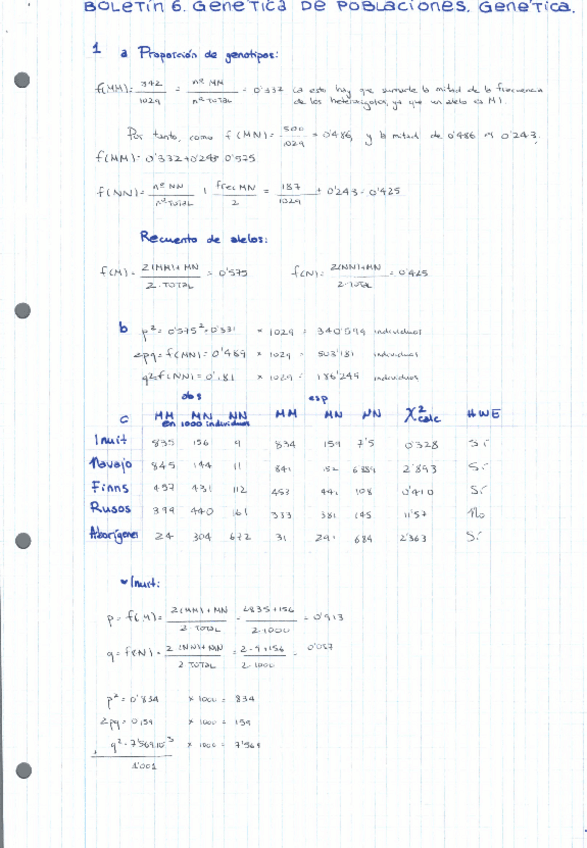 BOLETÍN 6. GENÉTICA DE POBLACIONES. GENÉTICA.
1 a Proporción de genotipos:
f(MM): 342/1029 = nº MM/nº TOTAL = 0'332 (a esto hay que sumarle la mitad de la frecuencia
de los heterocigotos, ya que un alelo es M).
Por tanto, como f(MN) = 500/1029 = 0'486, y la mitad de 0'486 es 0'243,
f(MM) = 0'332 + 0'243 = 0'575
f(NN) = nº NN/nº TOTAL + frec MN/2 = 187/1029 + 0'243 = 0'425
Recuento de alelos:
f(M) = 2(MM)+MN/2·TOTAL = 0'575 f(N) = 2(NN)+MN/2·TOTAL = 0'425
b p² = 0'575² = 0'331 × 1029 = individuos
2pq = f(MN) = 0'489 × 1029 = 503'181 individuos
q² = f(NN) = 0'181 × 1029 = 186'249 individuos
obs esp
c MM MN NN MM MN NN χ²calc HWE
en 1000 individuos
Inuit 835 156 9 834 159 7'5 0'328 Sí
Navajo 845 144 11 841 6'889 2'893 Sí
Finns 457 431 112 453 441 108 0'410 Sí
Rusos 399 440 161 333 381 145 11'57 No
Aborígenes 24 304 672 31 291 684 2'363 Sí
Inuit:
p = f(M) = 2(MM)+MN/2·TOTAL = 2·835+156/2·1000 = 0'913
q = f(N) = 2(NN)+MN/2·TOTAL = 2·9+156/2·1000 = 0'087
p² = 0'834 × 1000 = 834
2pq = 0,159 × 1000 = 159
+ q² = 7'569·10⁻³ × 1000 = 7'569
1'001